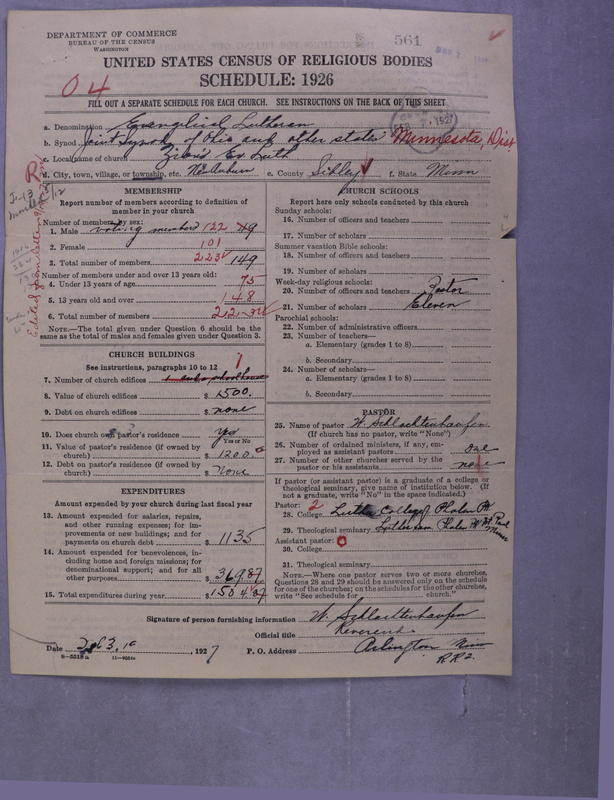 DEPARTMENT OF COMMERCE
BUREAU OF THE CENSUS
WASHINGTON
561
UNITED STATES CENSUS OF RELIGIOUS BODIES
SCHEDULE: 1926
04
FILL OUT A SEPARATE SCHEDULE FOR EACH CHURCH. SEE INSTRUCTIONS ON THE BACK OF THIS SHEET
a. Denomination Evanglical Lutheran
b. Synod Joint Synod of Ohio and other states Minnesota, Dist.
c. Local name of church Zion's Ev Luth
d. City, town, village, or township, etc. New Auburn e. County Sibley f. State Minn
MEMBERSHIP
Report number of members according to definition of member in your church
Number of members by sex:
1. Male voting members 122 49
2. Female 101
3. Total number of members 223 149
Number of members under and over 13 years old:
4. Under 13 years of age 75
5. 13 years old and over 148
6. Total number of members
NOTE.—The total given under Question 6 should be the same as the total of males and females given under Question 3.
CHURCH BUILDINGS
See instructions, paragraphs 10 to 12
7. Number of church edifices 1
8. Value of church edifices $ 1500.
9. Debt on church edifices $ none
10. Does church own pastor's residence yes
Yes or No
11. Value of pastor's residence (if owned by church) $ 1200.
12. Debt on pastor's residence (if owned by church) $ None
EXPENDITURES
Amount expended by your church during last fiscal year
13. Amount expended for salaries, repairs, and other running expenses; for improvements or new buildings; and for payments on church debt $ 1135
14. Amount expended for benevolences, including home and foreign missions; for denominational support; and for all other purposes $ 369.87
15. Total expenditures during year $ 1504.87
CHURCH SCHOOLS
Report here only schools conducted by this church
Sunday schools:
16. Number of officers and teachers
17. Number of scholars
Summer vacation Bible schools:
18. Number of officers and teachers
19. Number of scholars
Week-day religious schools:
20. Number of officers and teachers Pastor
21. Number of scholars Eleven
Parochial schools:
22. Number of administrative officers
23. Number of teachers—
a. Elementary (grades 1 to 8)
b. Secondary
24. Number of scholars—
a. Elementary (grades 1 to 8)
b. Secondary
PASTOR
25. Name of pastor W. Schlachtenhaufen
(If church has no pastor, write "None")
26. Number of ordained ministers, if any, employed as assistant pastors one
27. Number of other churches served by the pastor or his assistants none
If pastor (or assistant pastor) is a graduate of a college or theological seminary, give name of institution below. (If not a graduate, write "No" in the space indicated.)
Pastor: 2
28. College Luther College Phalen Pk
29. Theological seminary Lutheran Phalen Pk St. Paul Minn
Assistant pastor: 0
30. College
31. Theological seminary
NOTE.—Where one pastor serves two or more churches, Questions 28 and 29 should be answered only on the schedule for one of the churches; on the schedules for the other churches, write "See schedule for church."
Signature of person furnishing information W. Schlachtenhaufen
Official title Reverend
Date 192 7 P. O. Address Arlington Minn
R R 2.
8-5518a 11-9554